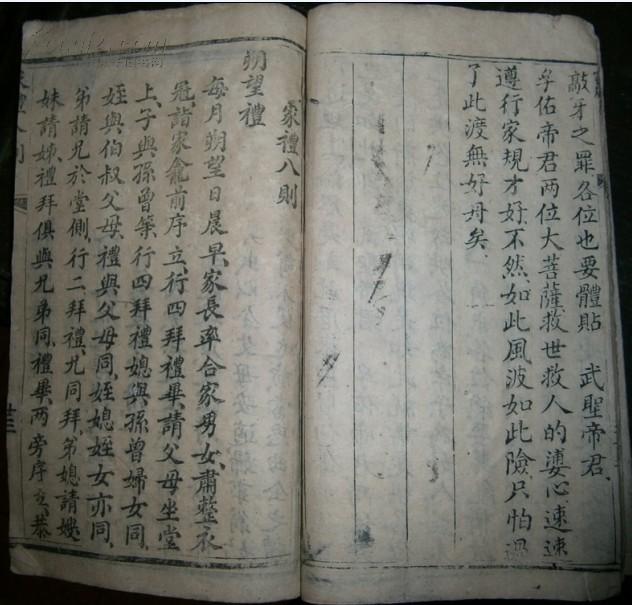 敲牙之罪各位也要體貼　武聖帝君
孚佑帝君两位大菩薩救世救人的婆心速速
遵行家規才好不然如此風波如此險只怕過
了此渡無好舟矣
家禮八則
朔望禮
每月朔望日晨早家長率合家男女肅整衣
冠詣家龕前序立行四拜禮畢請父母坐堂
上子與孫曾等行四拜禮媳與孫曾婦女同
姪與伯叔父母禮與父母同姪媳姪女亦同
弟請兄於堂側行二拜禮兄同拜弟媳請嫂
妹請姊禮拜俱與兄弟同禮畢两旁序立恭
家禮八則
廿三